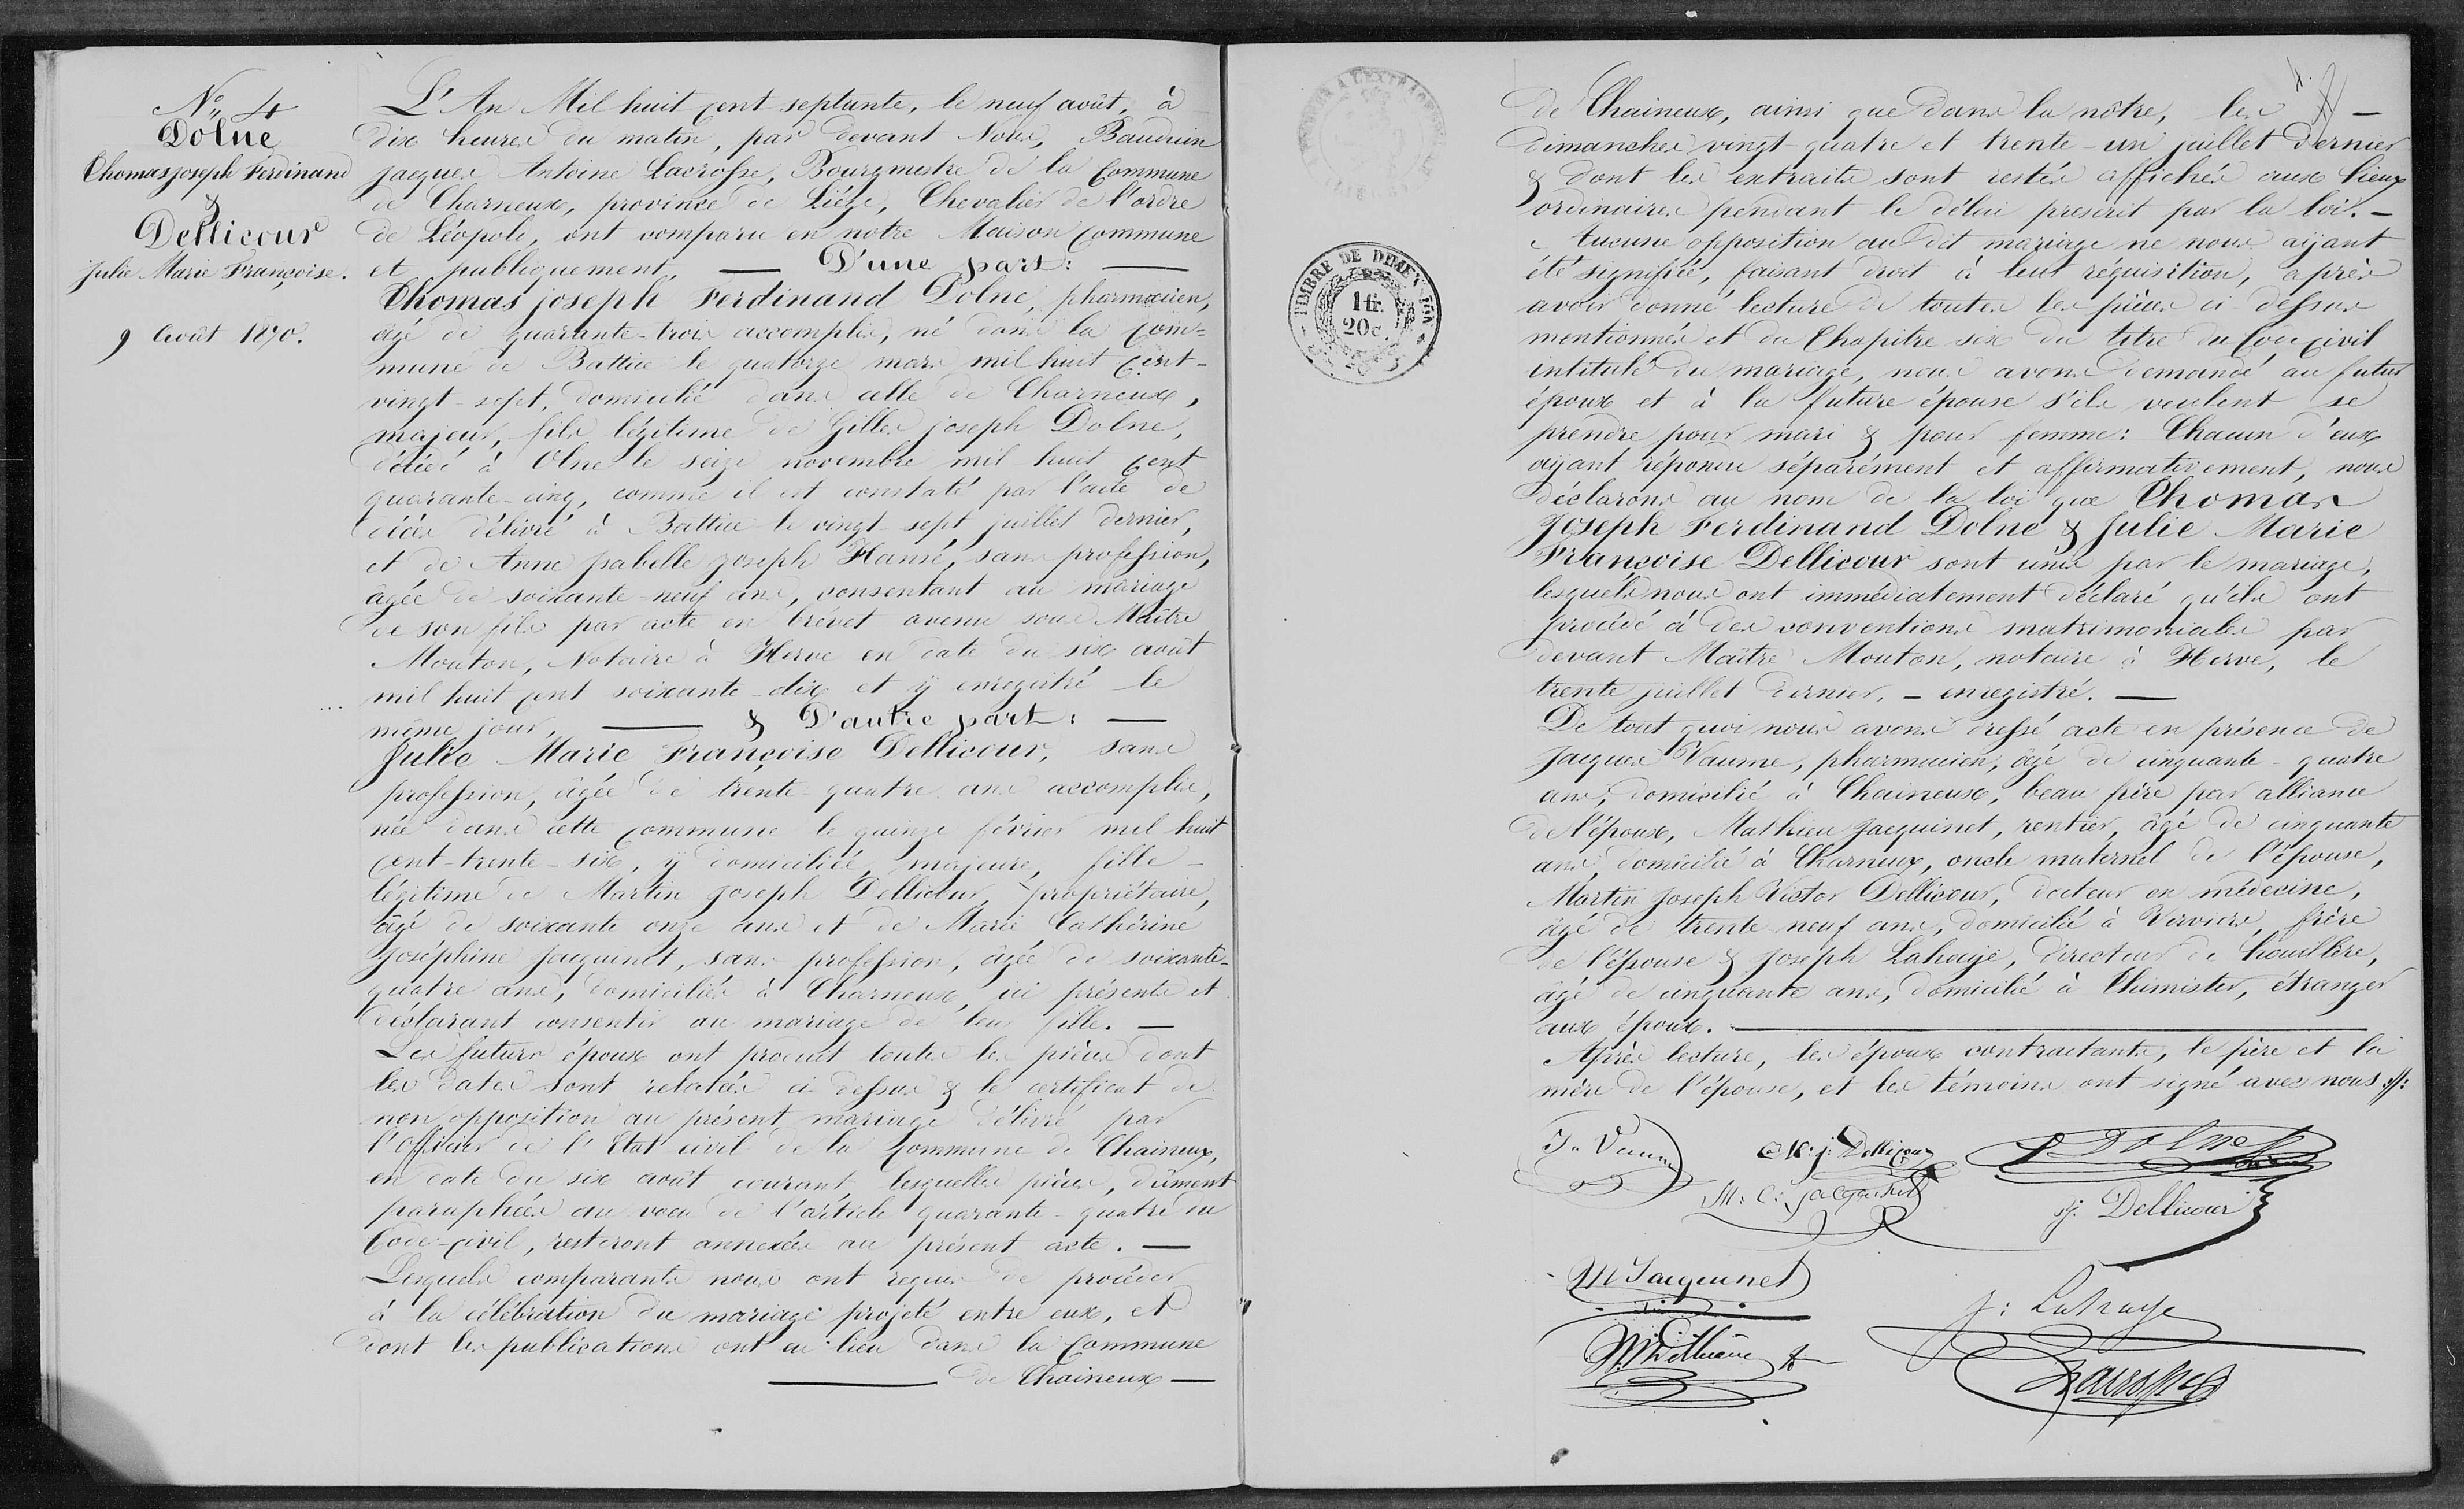 N° 4
Dolne
Thomas joseph Ferdinand
&
Dellicour
julie Marie Françoise.
9 Août 1870.
L'An Mil huit cent septante, le neuf août, à
dix heures du matin, par devant Nous, Bauduin
jacques Antoine Lacrosse, Bourgmestre de la Commune
de Charneux, province de Liége, Chevalier de l'ordre
de Léopold, ont comparu en notre Maison Commune
et publiquement, — D'une part: —
Thomas joseph Ferdinand Dolne, pharmacien,
âgé de quarante-trois accomplis, né dans la Com=
mune de Battice le quatorze mars mil huit cent-
vingt-sept, domicilié dans celle de Charneux,
majeur, fils légitime de Gilles joseph Dolne,
décédé à Olne le seize novembre mil huit cent
quarante-cinq, comme il est constaté par l'acte de
décès délivré à Battice le vingt-sept juillet dernier,
et de Anne isabelle joseph Hansé, sans profession,
âgée de soixante-neuf ans, consentant au mariage
de son fils par acte en brévet avenu sous Maître
Mouton, Notaire à Herve en date du six août
mil huit cent soixante-dix et ÿ enregistré le
même jour, — & D'autre part: —
Julie Marie Françoise Dellicour, sans
profession, âgée de trente-quatre ans accomplis,
née dans cette commune le quinze février mil huit
cent-trente-six, ÿ domiciliée, majeure, fille -
légitime de Martin joseph Dellicour, propriétaire,
âgé de soixante onze ans et de Marie Cathérine
joséphine jacquinet, sans profession, âgée de soixante-
quatre ans, domiciliés à Charneux, ici présents et
déclarant consentir au mariage de leur fille. —
Les futurs époux ont produit toutes les pièces dont
les dates sont relatées ci dessus & le certificat de
non opposition au présent mariage délivré par
l'officier de l'Etat civil de la Commune de Chaineux,
en date du six août courant lesquelles pièces, dûment
paraphées au vœu de l'article quarante-quatre du
Code-civil, resteront annexées au présent acte. —
Lesquels comparants nous ont requis de procéder
à la célébration du mariage projeté entre eux, et
dont les publications ont eu lieu dans la Commune
— de Chaineux —
TIMBRE DE DIMENSION
1fr.
20c.
de Chaineux, ainsi que dans la nôtre, les —
dimanches vingt-quatre et trente-un juillet dernier
& dont les extraits sont restés affichés aux lieux
ordinaires pendant le délai prescrit par la loi. —
Aucune opposition au dit mariage ne nous aÿant
été signifiée, faisant droit à leur réquisition, après
avoir donné lecture de toutes les pièces ci dessus
mentionnés et du Chapitre six du titre du Code civil
intitulé du mariage, nous avons demandé au futur
époux et à la future épouse s'ils veulent se
prendre pour mari & pour femme: Chacun d'eux
aÿant répondu séparément et affirmativement, nous
déclarons au nom de la loi que Thomas
Joseph Ferdinand Dolne & Julie Marie
Françoise Dellicour sont unis par le mariage,
lesquels nous ont immédiatement déclaré qu'ils ont
procédé à des conventions matrimoniales par
devant Maître Mouton, notaire à Herve, le
trente juillet dernier, — enregistré. —
De tout quoi nous avons dressé acte en présence de
Jacques Vaume, pharmacien, âgé de cinquante-quatre
ans, domicilié à Chaineux, beau frère par alliance
de l'époux, Mathieu Jacquinet, rentier, âgé de cinquante
ans, domicilié à Charneux, oncle maternel de l'épouse,
Martin Joseph Victor Dellicour, docteur en médecine,
âgé de trente-neuf ans, domicilié à Verviers, frère
de l'épouse & joséph Lahaÿe, directeur de houillère,
âgé de cinquante ans, domicilié à Thimister, étranger
aux époux. —
Après lecture, les époux contractants, le père et la
mère de l'épouse, et les témoins ont signé avec nous
M. j. Dellicour
Dolne
M: C: jacquinet
j. Dellicour
M Jacquinet
j: Lahaye
Lacrosse